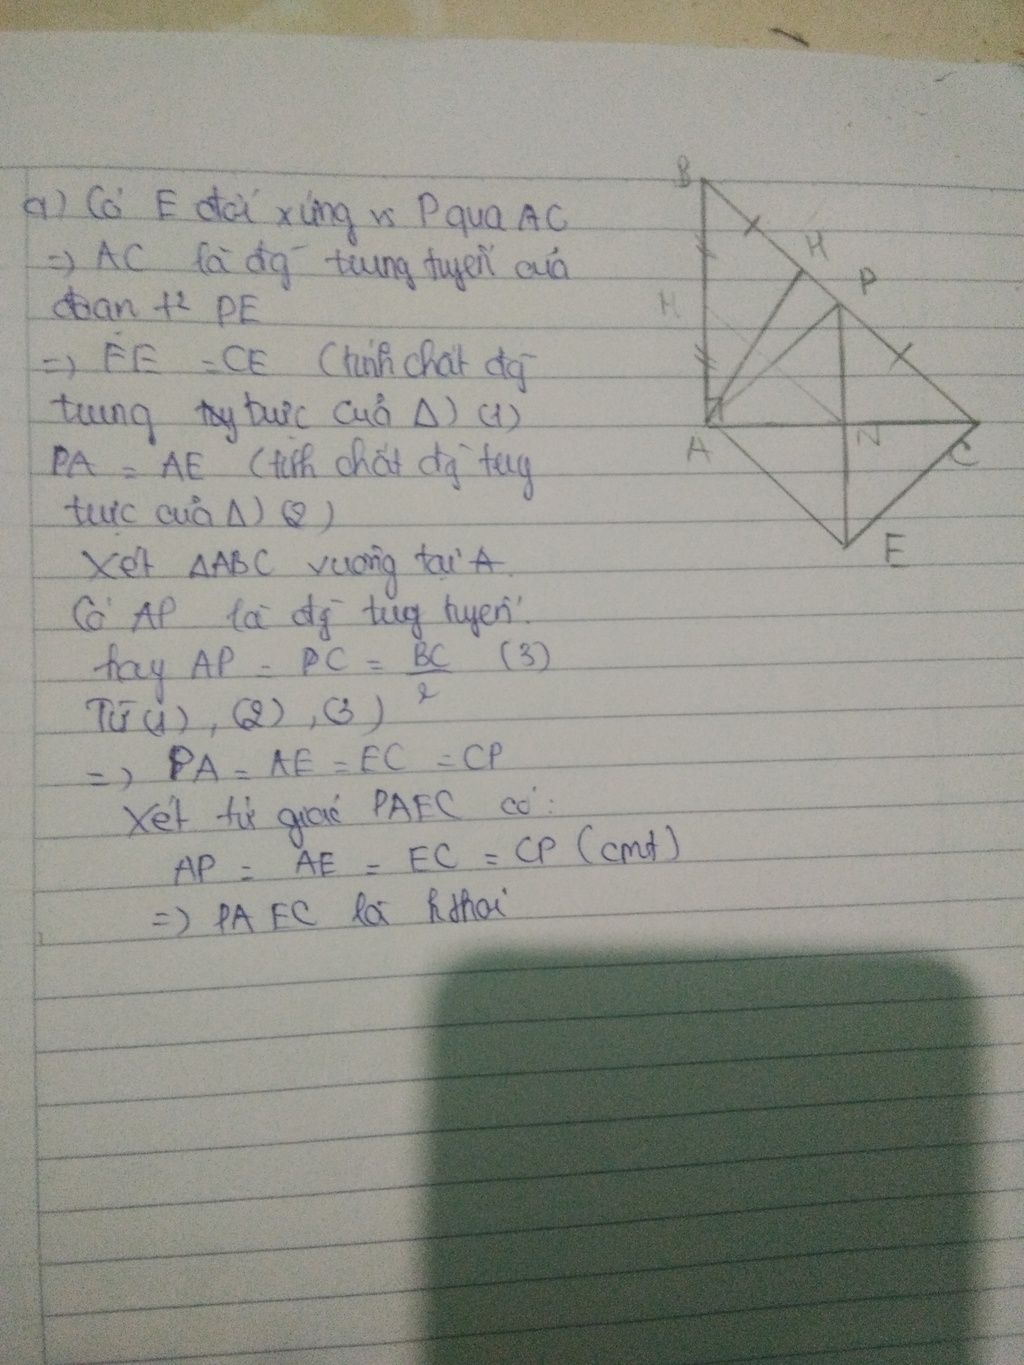 a) Có E đối xứng vs P qua AC
=> AC là đg trung tuyến của
đoạn t² PE
=> EE = CE (tính chất đg
trung trực cuả Δ) (1)
PA = AE (tính chất đg tug
trực cuả Δ) (2)
Xét ΔABC vuông tại A
Có AP là đg tug tuyến.
hay AP = PC = BC/2 (3)
Từ (1), (2), (3)
=> PA = AE = EC = CP
Xét tứ giác PAEC có:
AP = AE = EC = CP (cmt)
=> PAEC là h.thoi
B
H
P
M
A
N
C
E